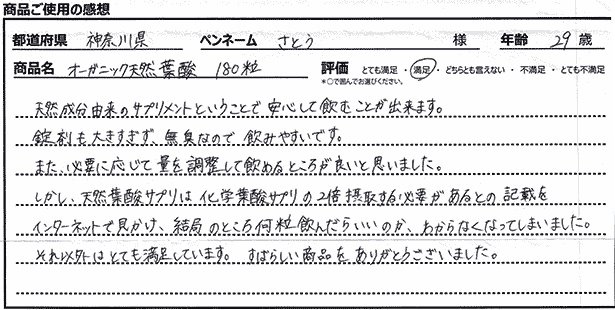 商品ご使用の感想
都道府県 神奈川県 ペンネーム さとう 様 年齢 29 歳
商品名 オーガニック天然葉酸 180粒 評価 とても満足・満足・どちらとも言えない・不満足・とても不満足
*○で囲んでお選びください。
天然成分由来のサプリメントということで安心して飲むことが出来ます。
錠剤も大きすぎず、無臭なので飲みやすいです。
また、必要に応じて量を調整して飲めるところが良いと思いました。
しかし、天然葉酸サプリは化学葉酸サプリの2倍摂取する必要があるとの記載を
インターネットで見かけ、結局のところ何粒飲んだらいいのか、わからなくなってしまいました。
それ以外はとても満足しています。すばらしい商品をありがとうございました。